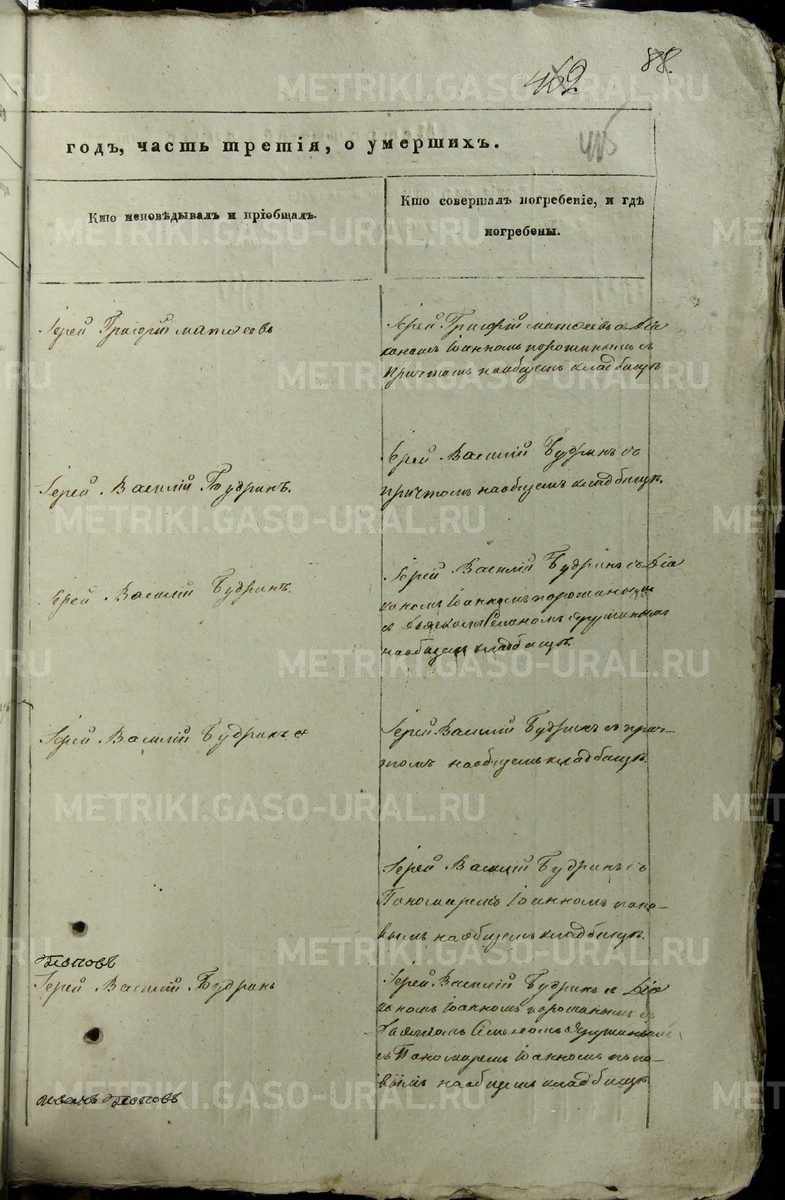 88.
годъ, часть третія, о умершихъ.
Кто исповѣдывалъ и пріобщалъ.
Кто совершалъ погребеніе, и гдѣ
погребены.
Іерей Григорій Матѳеевъ
Іерей Григорій Матѳеевъ съ Діа
кономъ Іоанномъ порошинымъ съ
Причтомъ наобщемъ кладбищѣ
Іерей Василій Будринъ.
Іерей Василій Будринъ съ
причтомъ наобщемъ кладбищѣ.
Іерей Василій Будринъ.
Іерей Василій Будринъ съ Діа
кономъ Іоанномъ порошинымъ
наобщемъ кладбищѣ
Іерей Василій Будринъ
Іерей Василій Будринъ съ прич-
томъ наобщемъ кладбищѣ.
Іерей Василій Будринъ съ
Пономаремъ Іоанномъ попо-
вымъ наобщемъ кладбищѣ.
Поповъ
Іерей Василій Будринъ
Іерей Василій Будринъ съ Діа
кономъ Іоанномъ порошинымъ съ
съ Пономаремъ Іоанномъ попо-
вымъ наобщемъ кладбищѣ
Иванъ Поповъ
METRIKI.GASO-URAL.RU